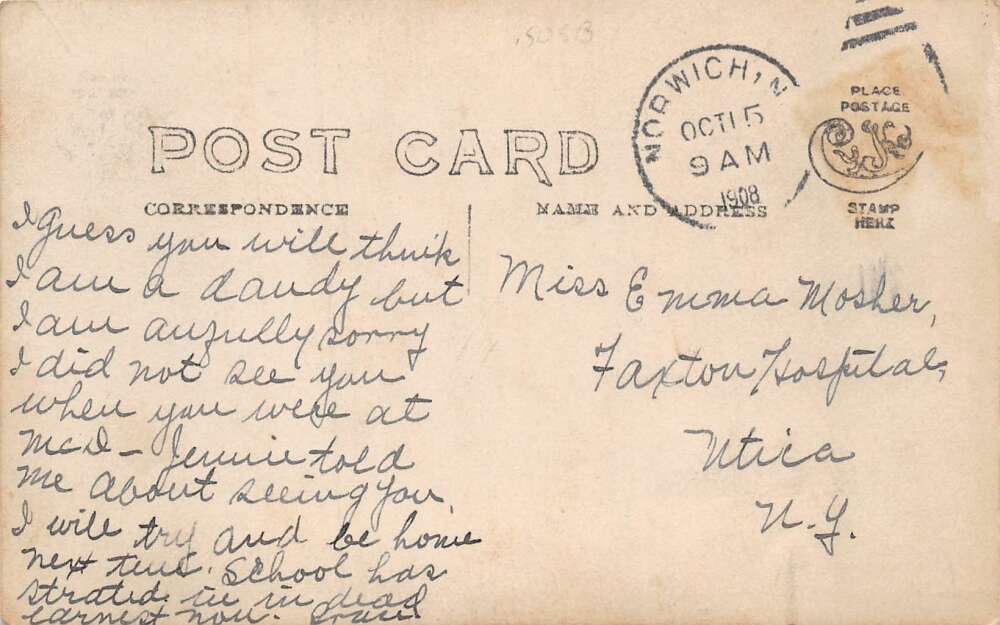 POST CARD
CORRESPONDENCE
NAME AND ADDRESS
NORWICH, N
OCT 15
9 AM
1908
PLACE
POSTAGE
STAMP
HERE
I guess you will think
I am a dandy but
I am awfully sorry
I did not see you
when you were at
McD - Jennie told
me about seeing you
I will try and be home
next time. School has
strated in in dead
earnest now. Grace
Miss Emma Mosher,
Faxton Hospital,
Utica
N.Y.